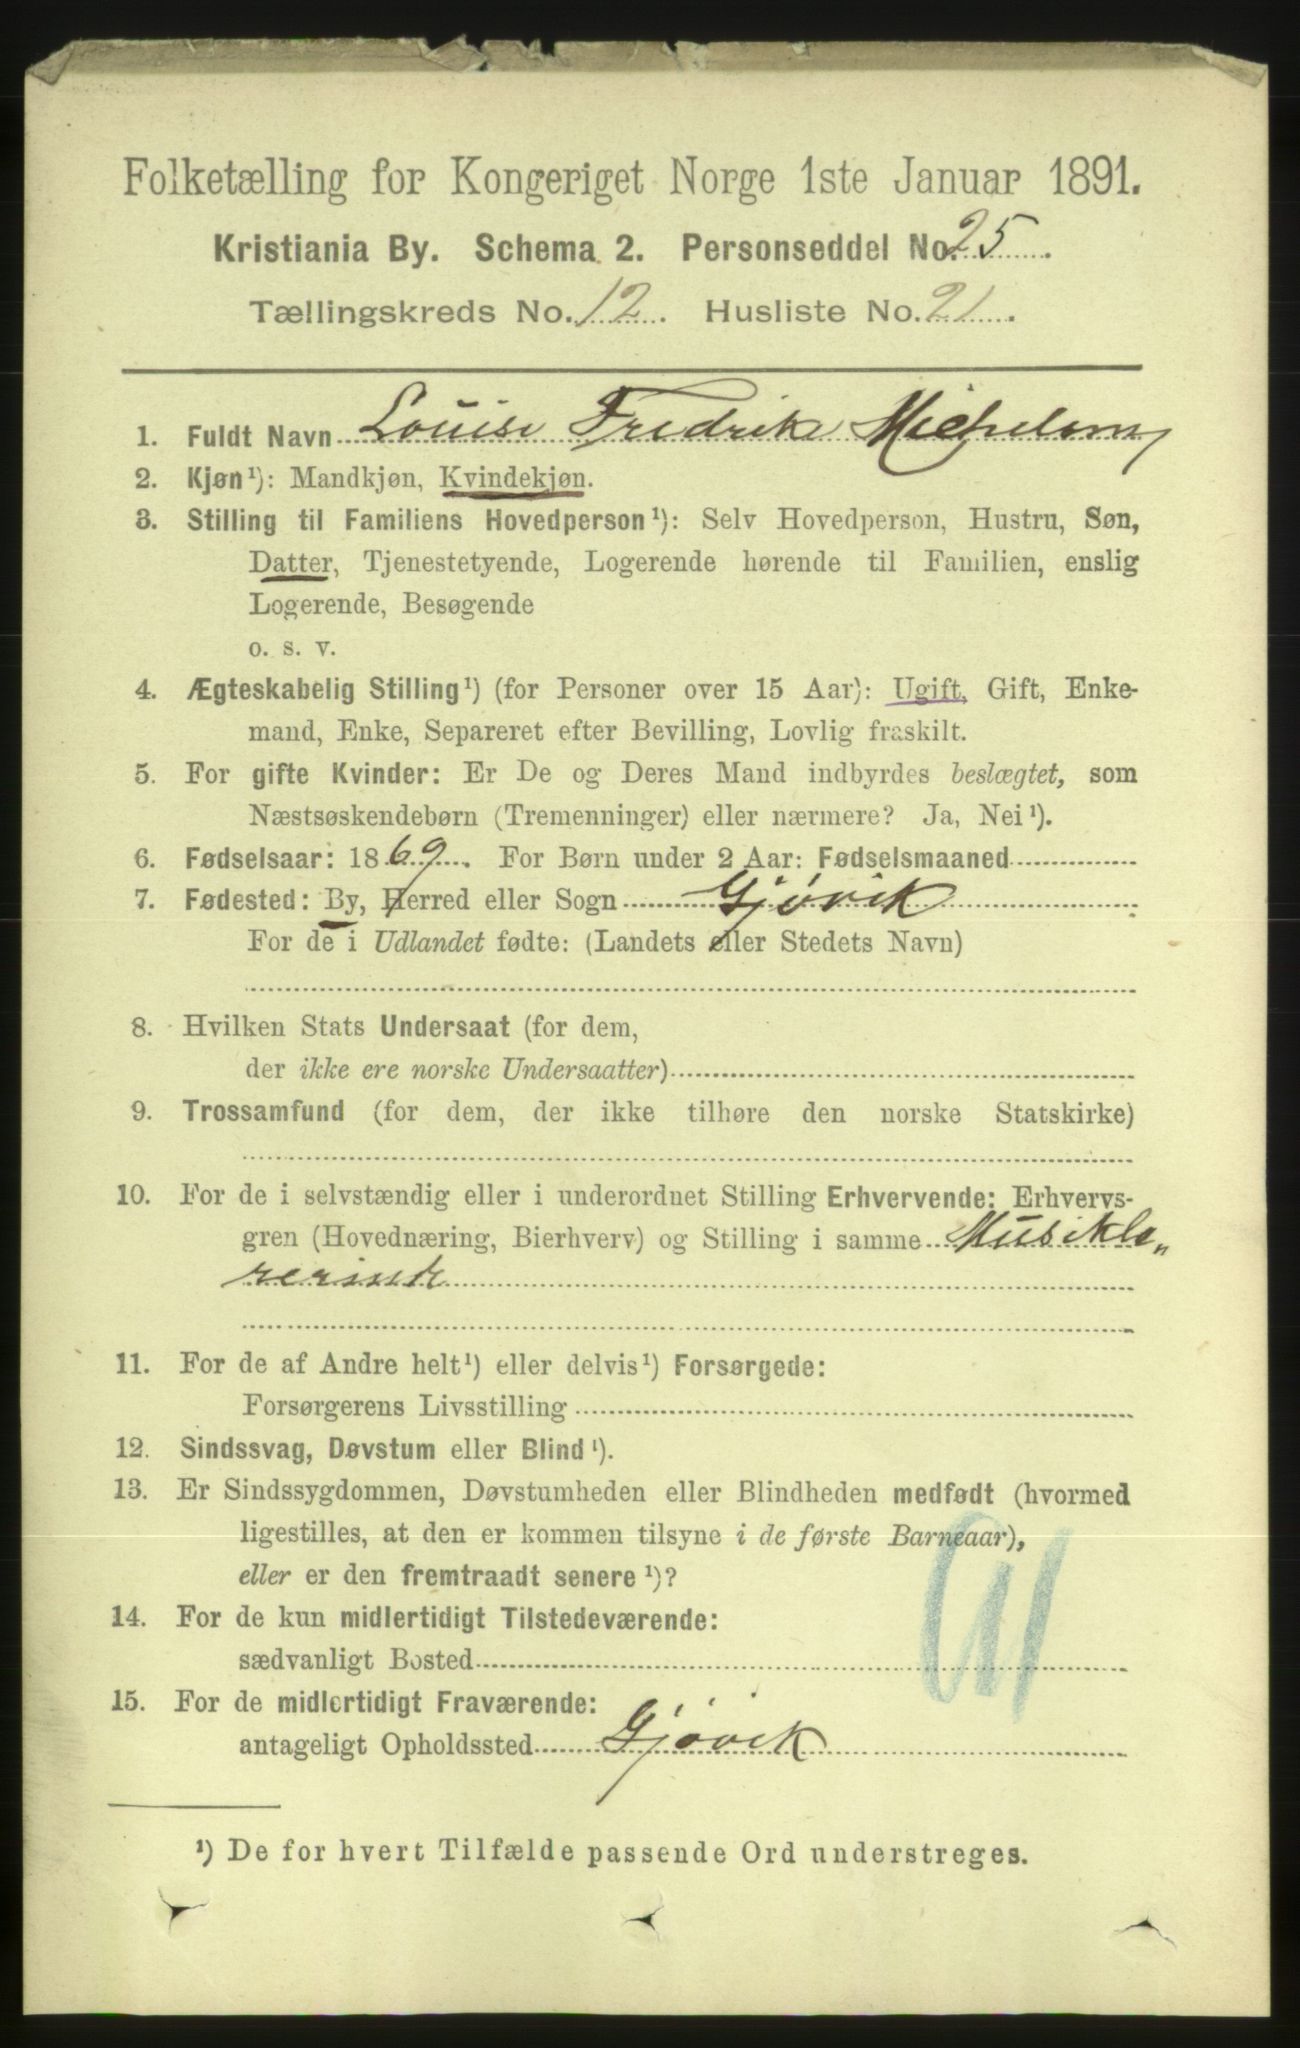 Folketælling for Kongeriget Norge 1ste Januar 1891.
Kristiania By. Schema 2. Personseddel No. 25.
Tællingskreds No. 12. Husliste No. 21.
1. Fuldt Navn Louise Fredrikke Michelsen
2. Kjøn¹): Mandkjøn, Kvindekjøn.
3. Stilling til Familiens Hovedperson¹): Selv Hovedperson, Hustru, Søn,
Datter, Tjenestetyende, Logerende hørende til Familien, enslig
Logerende, Besøgende
o. s. v.
4. Ægteskabelig Stilling¹) (for Personer over 15 Aar): Ugift, Gift, Enke-
mand, Enke, Separeret efter Bevilling, Lovlig fraskilt.
5. For gifte Kvinder: Er De og Deres Mand indbyrdes beslægtet, som
Næstsøskendebørn (Tremenninger) eller nærmere? Ja, Nei¹).
6. Fødselsaar: 1869. For Børn under 2 Aar: Fødselsmaaned
7. Fødested: By, Herred eller Sogn Gjøvik
For de i Udlandet fødte: (Landets eller Stedets Navn)
8. Hvilken Stats Undersaat (for dem,
der ikke ere norske Undersaatter)
9. Trossamfund (for dem, der ikke tilhøre den norske Statskirke)
10. For de i selvstændig eller i underordnet Stilling Erhvervende: Erhvervs-
gren (Hovednæring, Bierhverv) og Stilling i samme Musiklæ„
rerinde
11. For de af Andre helt¹) eller delvis¹) Forsørgede:
Forsørgerens Livsstilling
12. Sindssvag, Døvstum eller Blind¹).
13. Er Sindssygdommen, Døvstumheden eller Blindheden medfødt (hvormed
ligestilles, at den er kommen tilsyne i de første Barneaar),
eller er den fremtraadt senere¹)?
14. For de kun midlertidigt Tilstedeværende:
sædvanligt Bosted
15. For de midlertidigt Fraværende:
antageligt Opholdssted Gjøvik
¹) De for hvert Tilfælde passende Ord understreges.